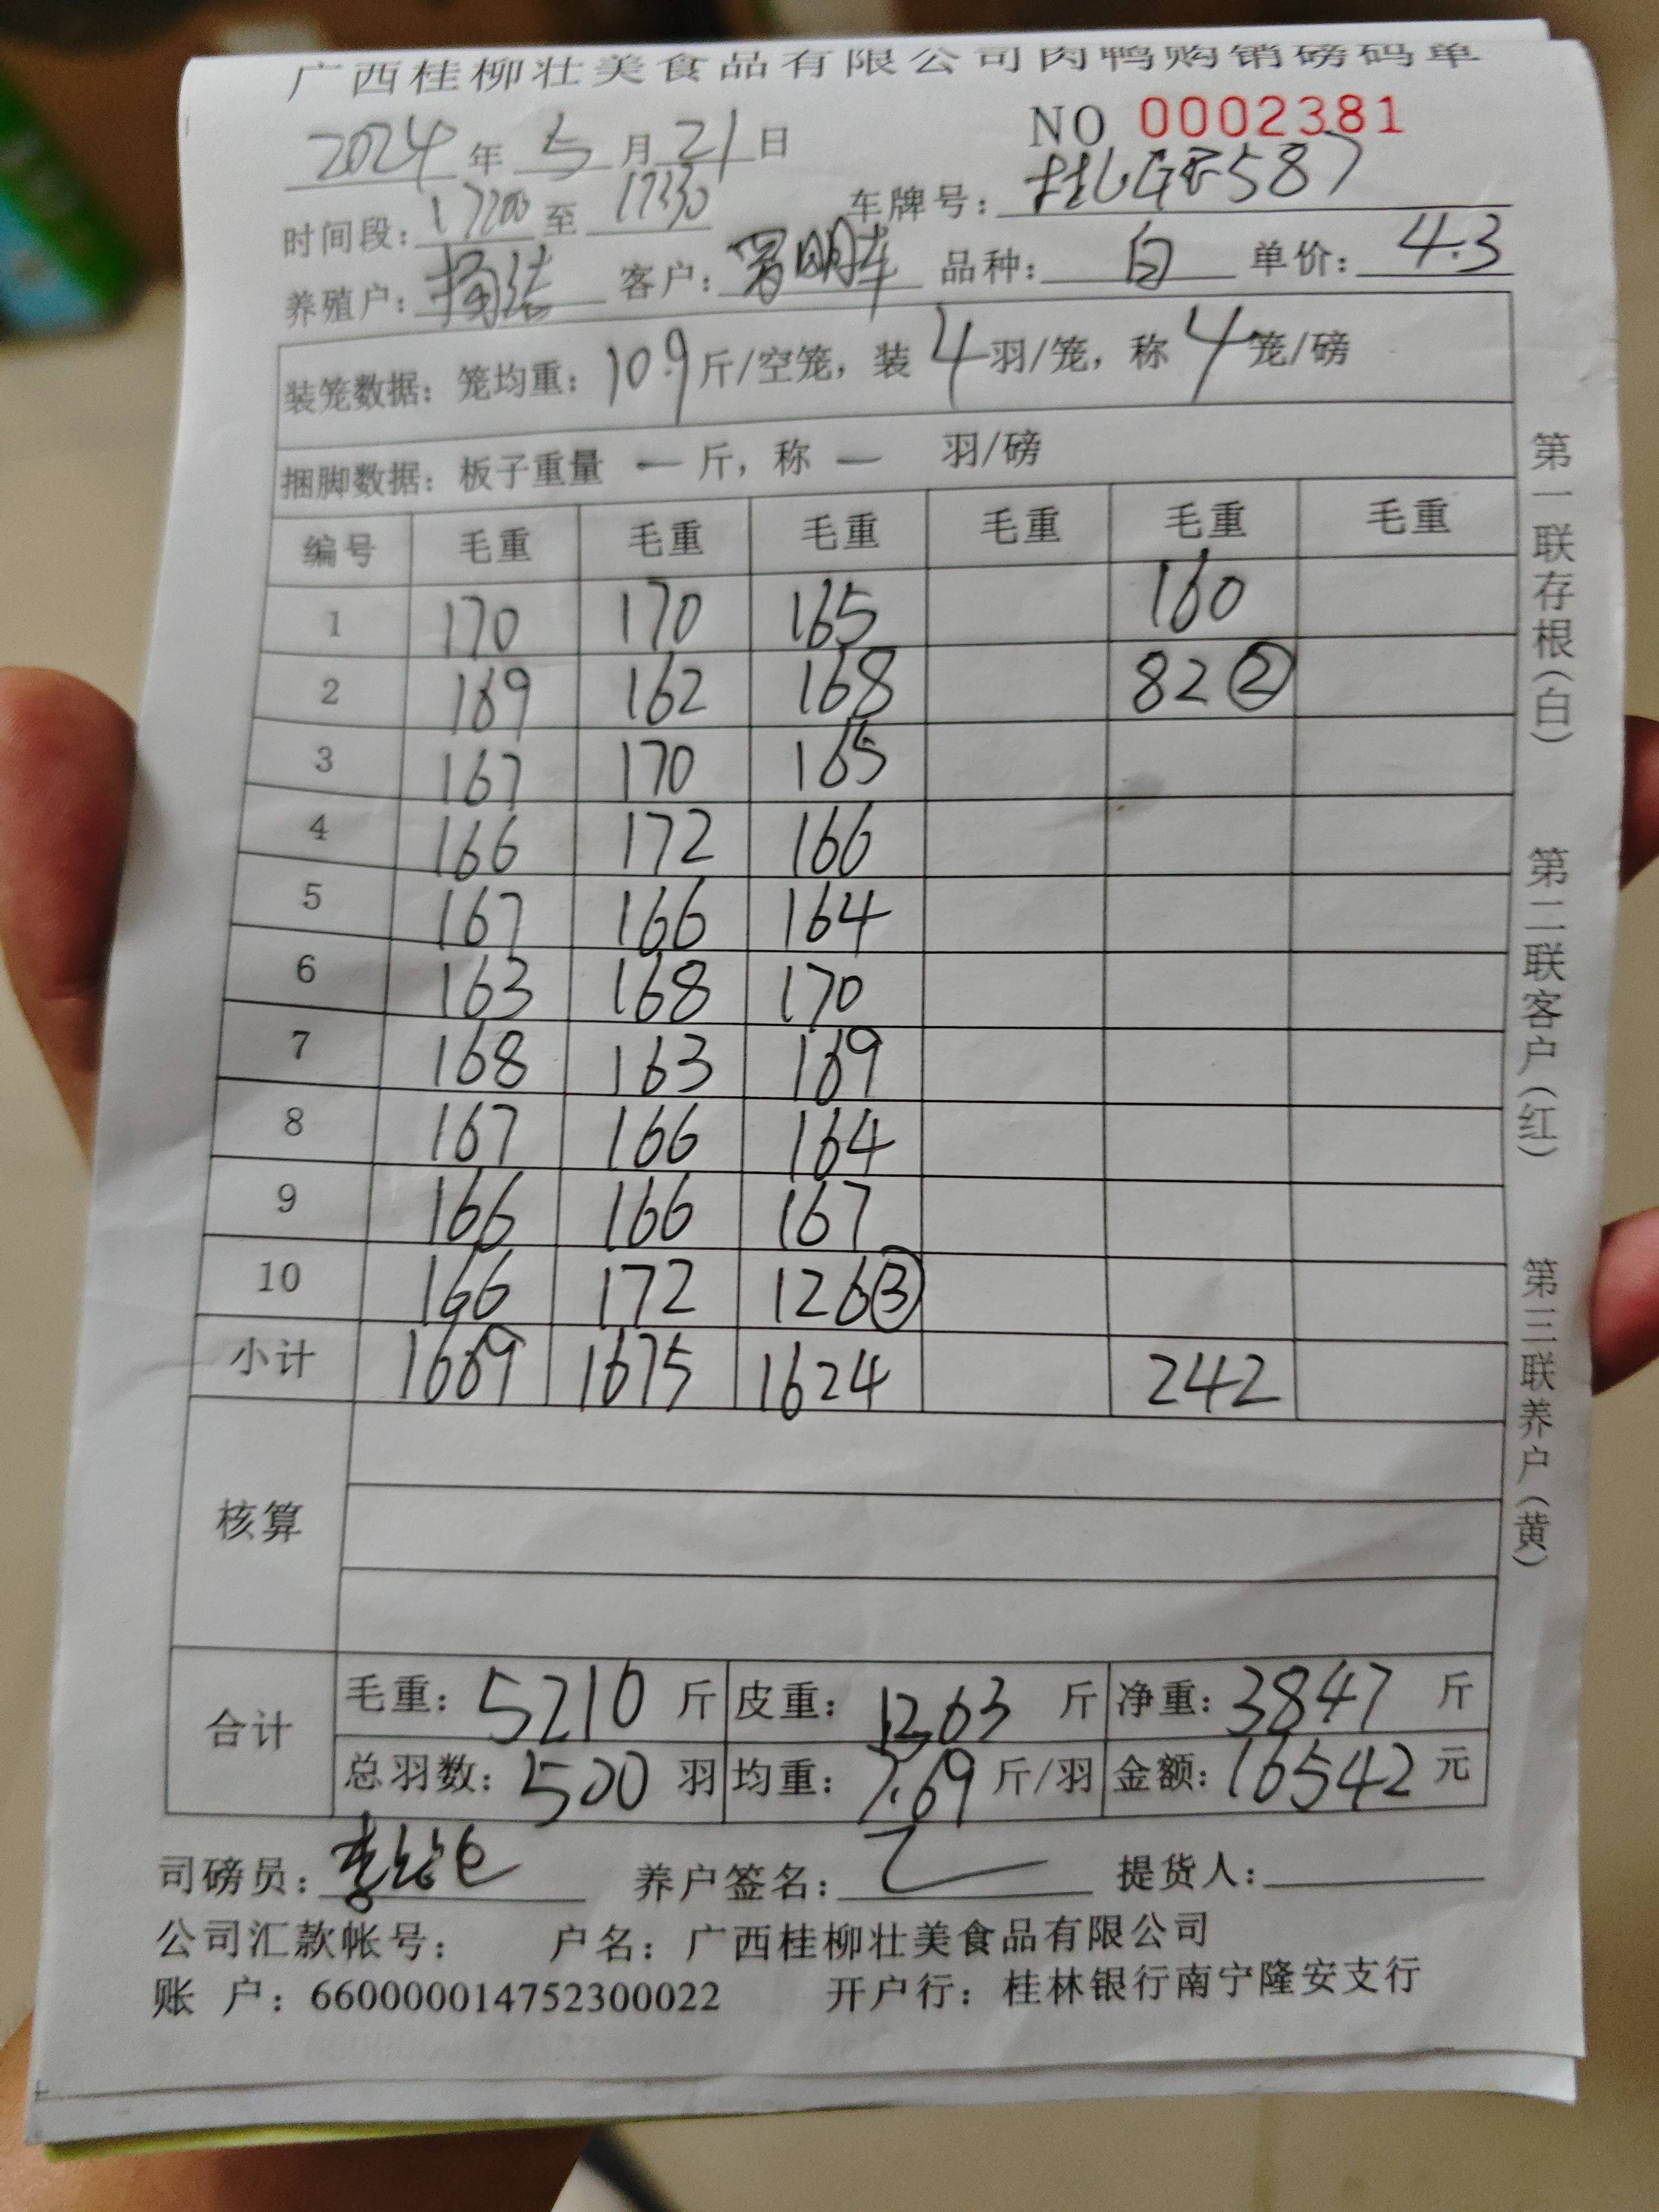 广西桂柳壮美食品有限公司肉鸭购销磅码单
NO 0002381
2024年5月21日
时间段：17200至17330 车牌号：587
养殖户： 客户： 品种：白 单价：4.3
装笼数据：笼均重：10.9斤/空笼，装4羽/笼，称4笼/磅
捆脚数据：板子重量 — 斤，称 — 羽/磅
编号 毛重 毛重 毛重 毛重 毛重 毛重
1 170 170 165 160
2 169 162 168 82②
3 167 170 165
4 166 172 166
5 167 166 164
6 163 168 170
7 168 163 169
8 167 166 164
9 166 166 167
10 166 172 126③
小计 1669 1675 1624 242
核算
合计 毛重：5210斤 皮重：1263斤 净重：3847斤
总羽数：500羽 均重：7.69斤/羽 金额：16542元
司磅员： 养户签名： 提货人：
公司汇款帐号： 户名：广西桂柳壮美食品有限公司
账 户：660000014752300022 开户行：桂林银行南宁隆安支行
第一联存根（白） 第二联客户（红） 第三联养户（黄）